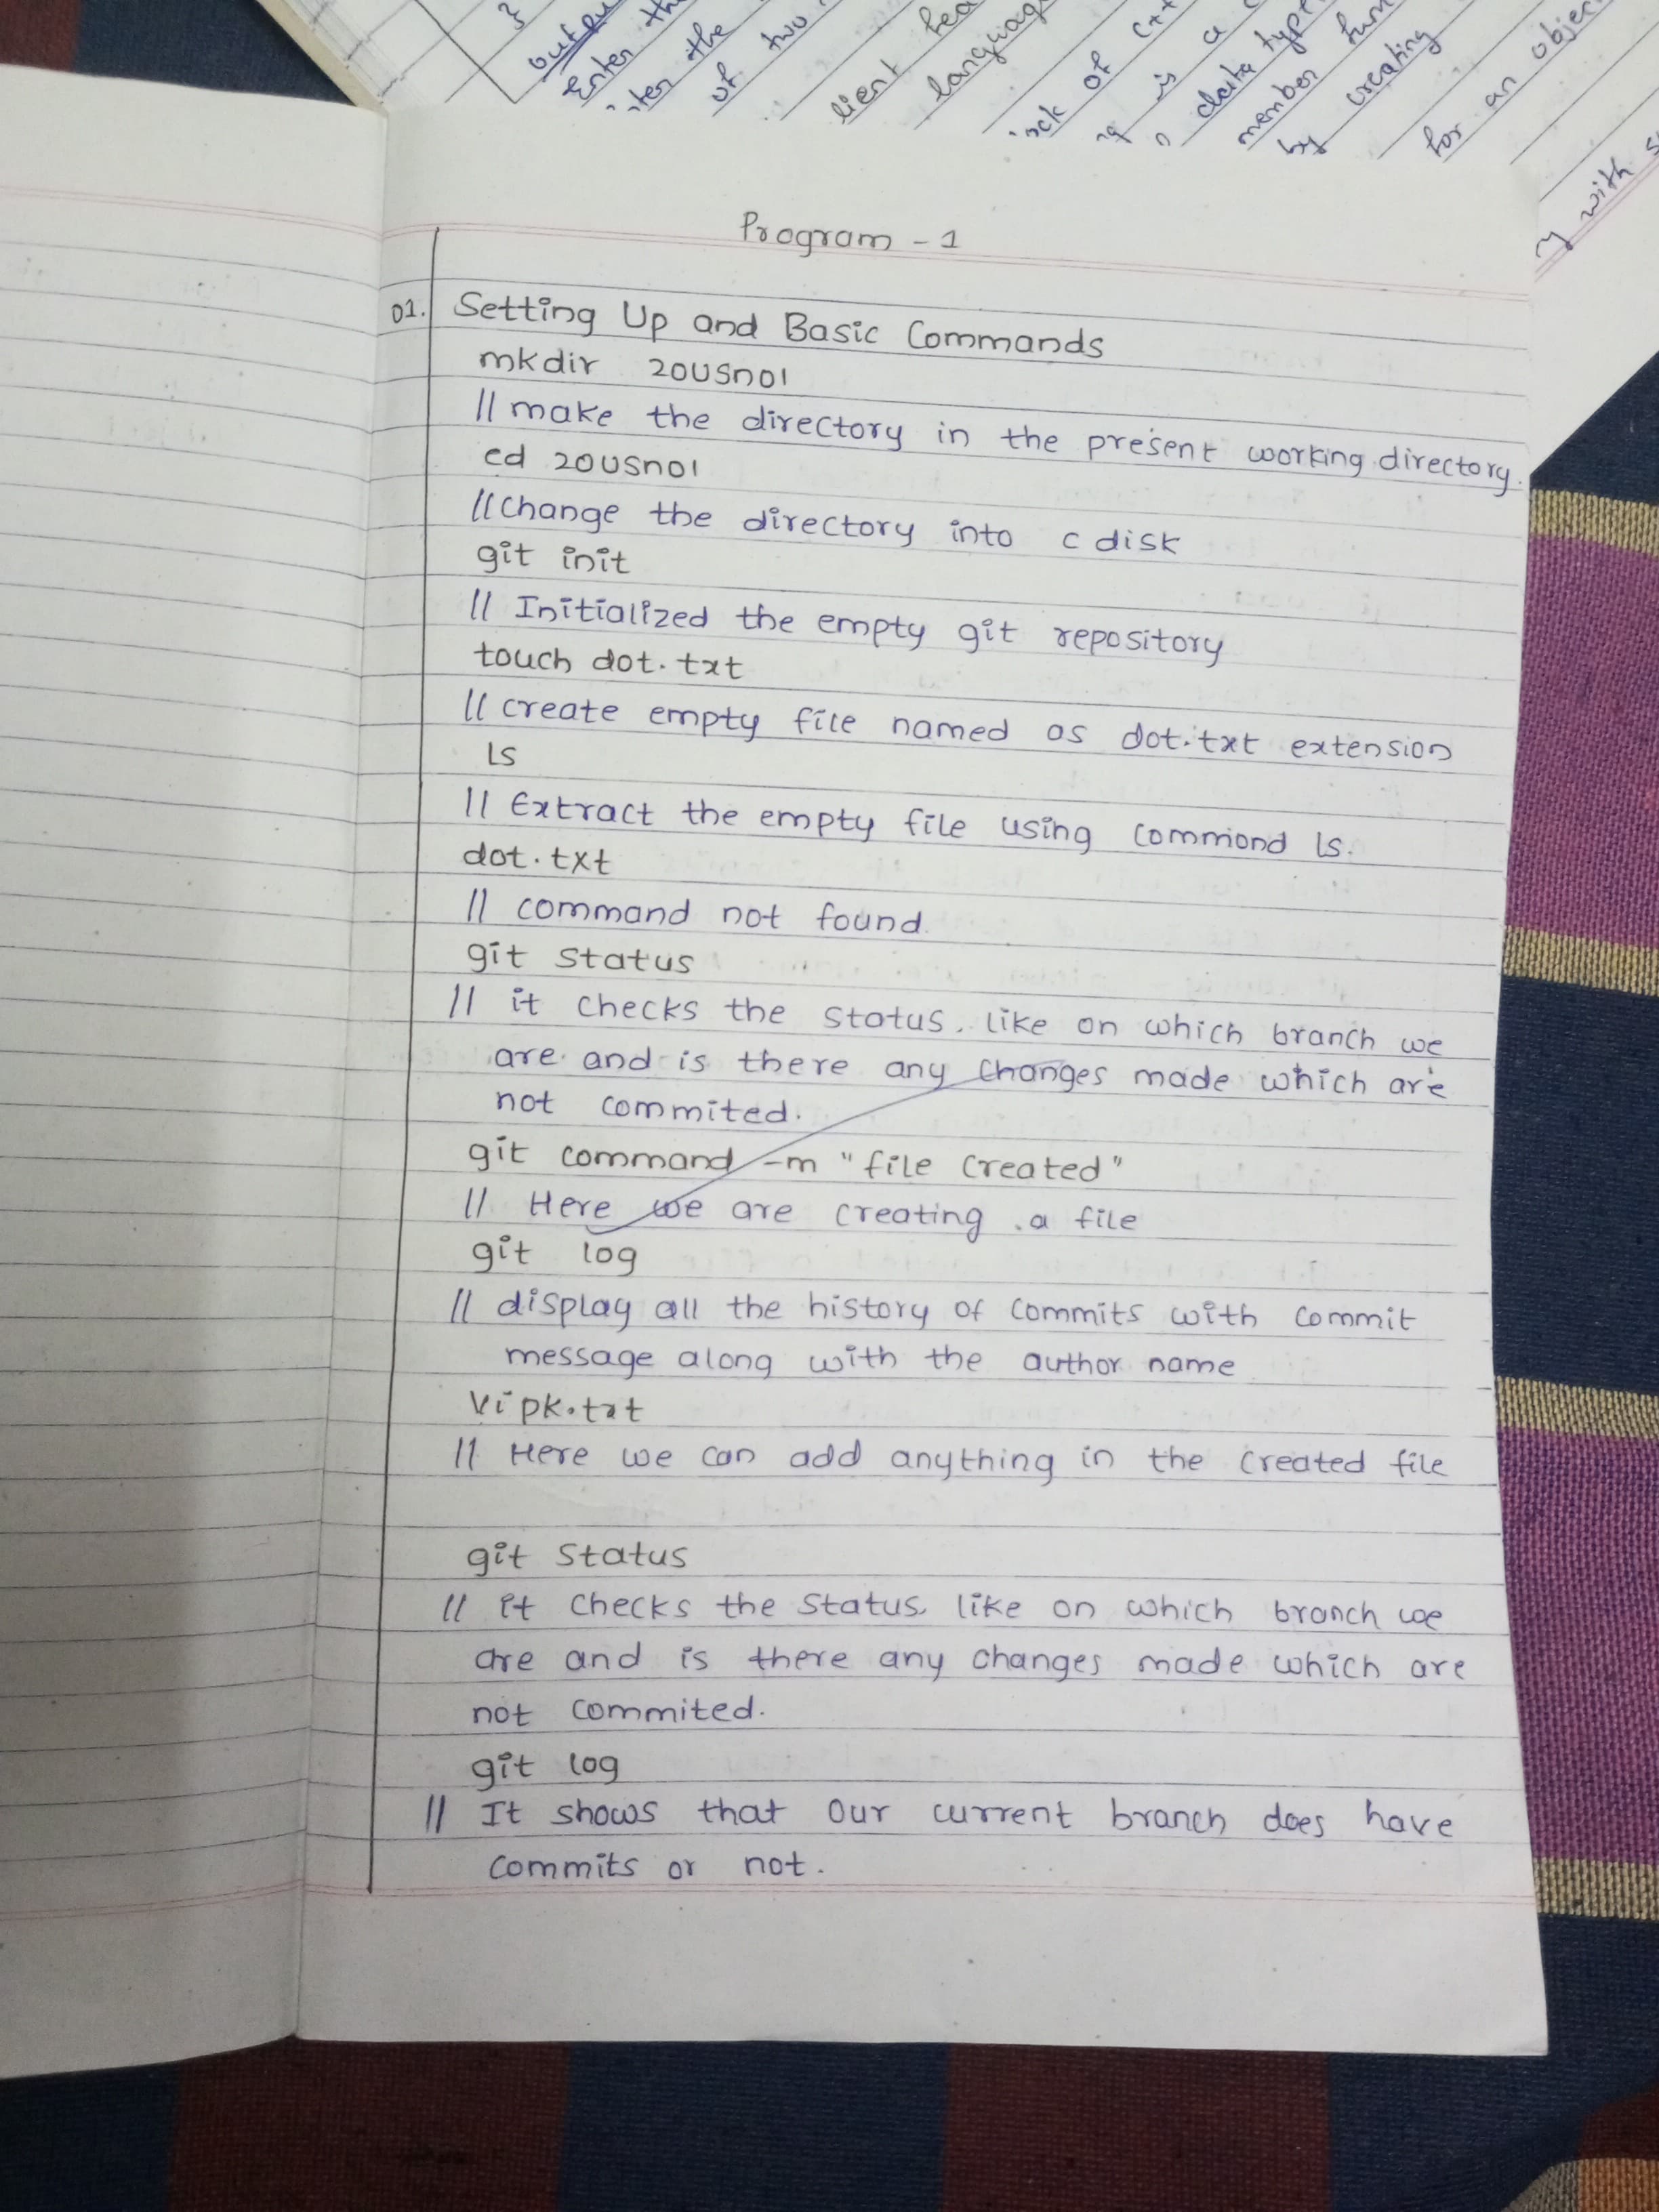 }
Enter the
the
of two
language
of C++
is a
data type
member
by creating
for an
with
Program - 1
01. Setting Up and Basic Commands
mkdir 20USn01
// make the directory in the present working directory.
cd 20USn01
// Change the directory into c disk
git init
// Initialized the empty git repository
touch dot.txt
// create empty file named as dot.txt extension
ls
// Extract the empty file using commond ls.
dot.txt
// command not found.
git status
// it checks the status. like on which branch we
are and is there any changes made which are
not commited.
git command -m "file created"
// Here we are creating a file
git log
// display all the history of commits with commit
message along with the author name
Vi pk.txt
// Here we can add anything in the created file
git status
// it checks the status, like on which branch we
are and is there any changes made which are
not commited.
git log
// It shows that our current branch does have
commits or not.